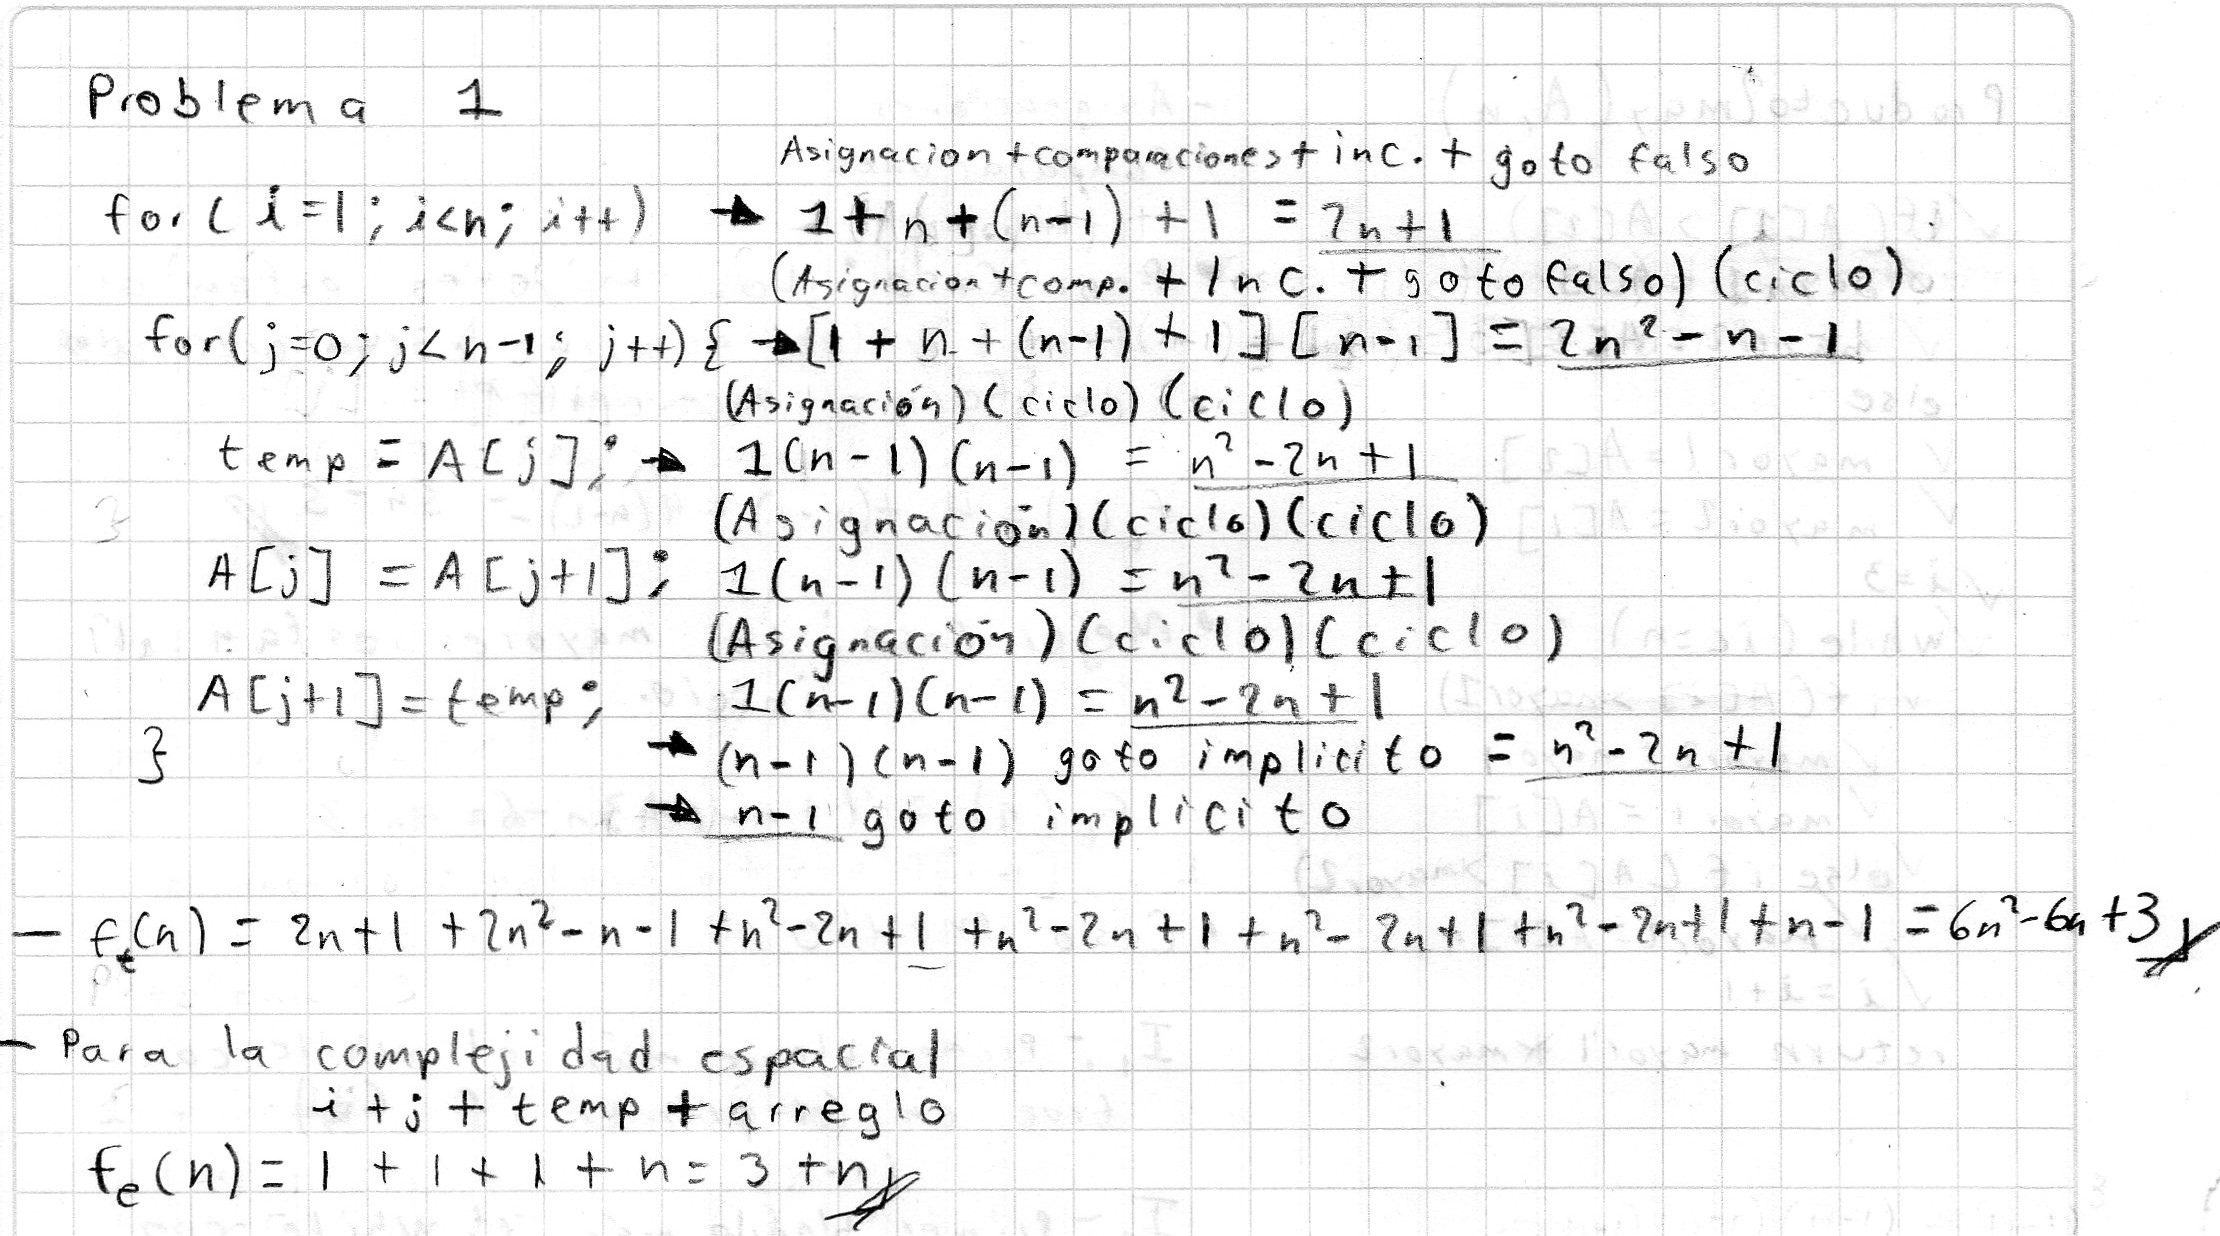 Problema 1
Asignacion + comparaciones + inc. + goto falso
for ( i=1; i<n; i++) → 1 + n + (n-1) + 1 = 2n+1
(Asignacion + comp. + Inc. + goto falso) (ciclo)
for( j=0; j<n-1; j++) { → [1 + n + (n-1) + 1] [n-1] = 2n² - n - 1
(Asignación) (ciclo) (ciclo)
temp = A[j]; → 1(n-1)(n-1) = n² - 2n + 1
(Asignación) (ciclo) (ciclo)
A[j] = A[j+1]; 1(n-1)(n-1) = n² - 2n + 1
(Asignación) (ciclo) (ciclo)
A[j+1] = temp; 1(n-1)(n-1) = n² - 2n + 1
} → (n-1)(n-1) goto implicito = n² - 2n + 1
→ n-1 goto implicito
- ft(n) = 2n+1 + 2n² - n - 1 + n² - 2n + 1 + n² - 2n + 1 + n² - 2n + 1 + n² - 2n + 1 + n - 1 = 6n² - 6n + 3
- Para la complejidad espacial
i + j + temp + arreglo
fe(n) = 1 + 1 + 1 + n = 3 + n